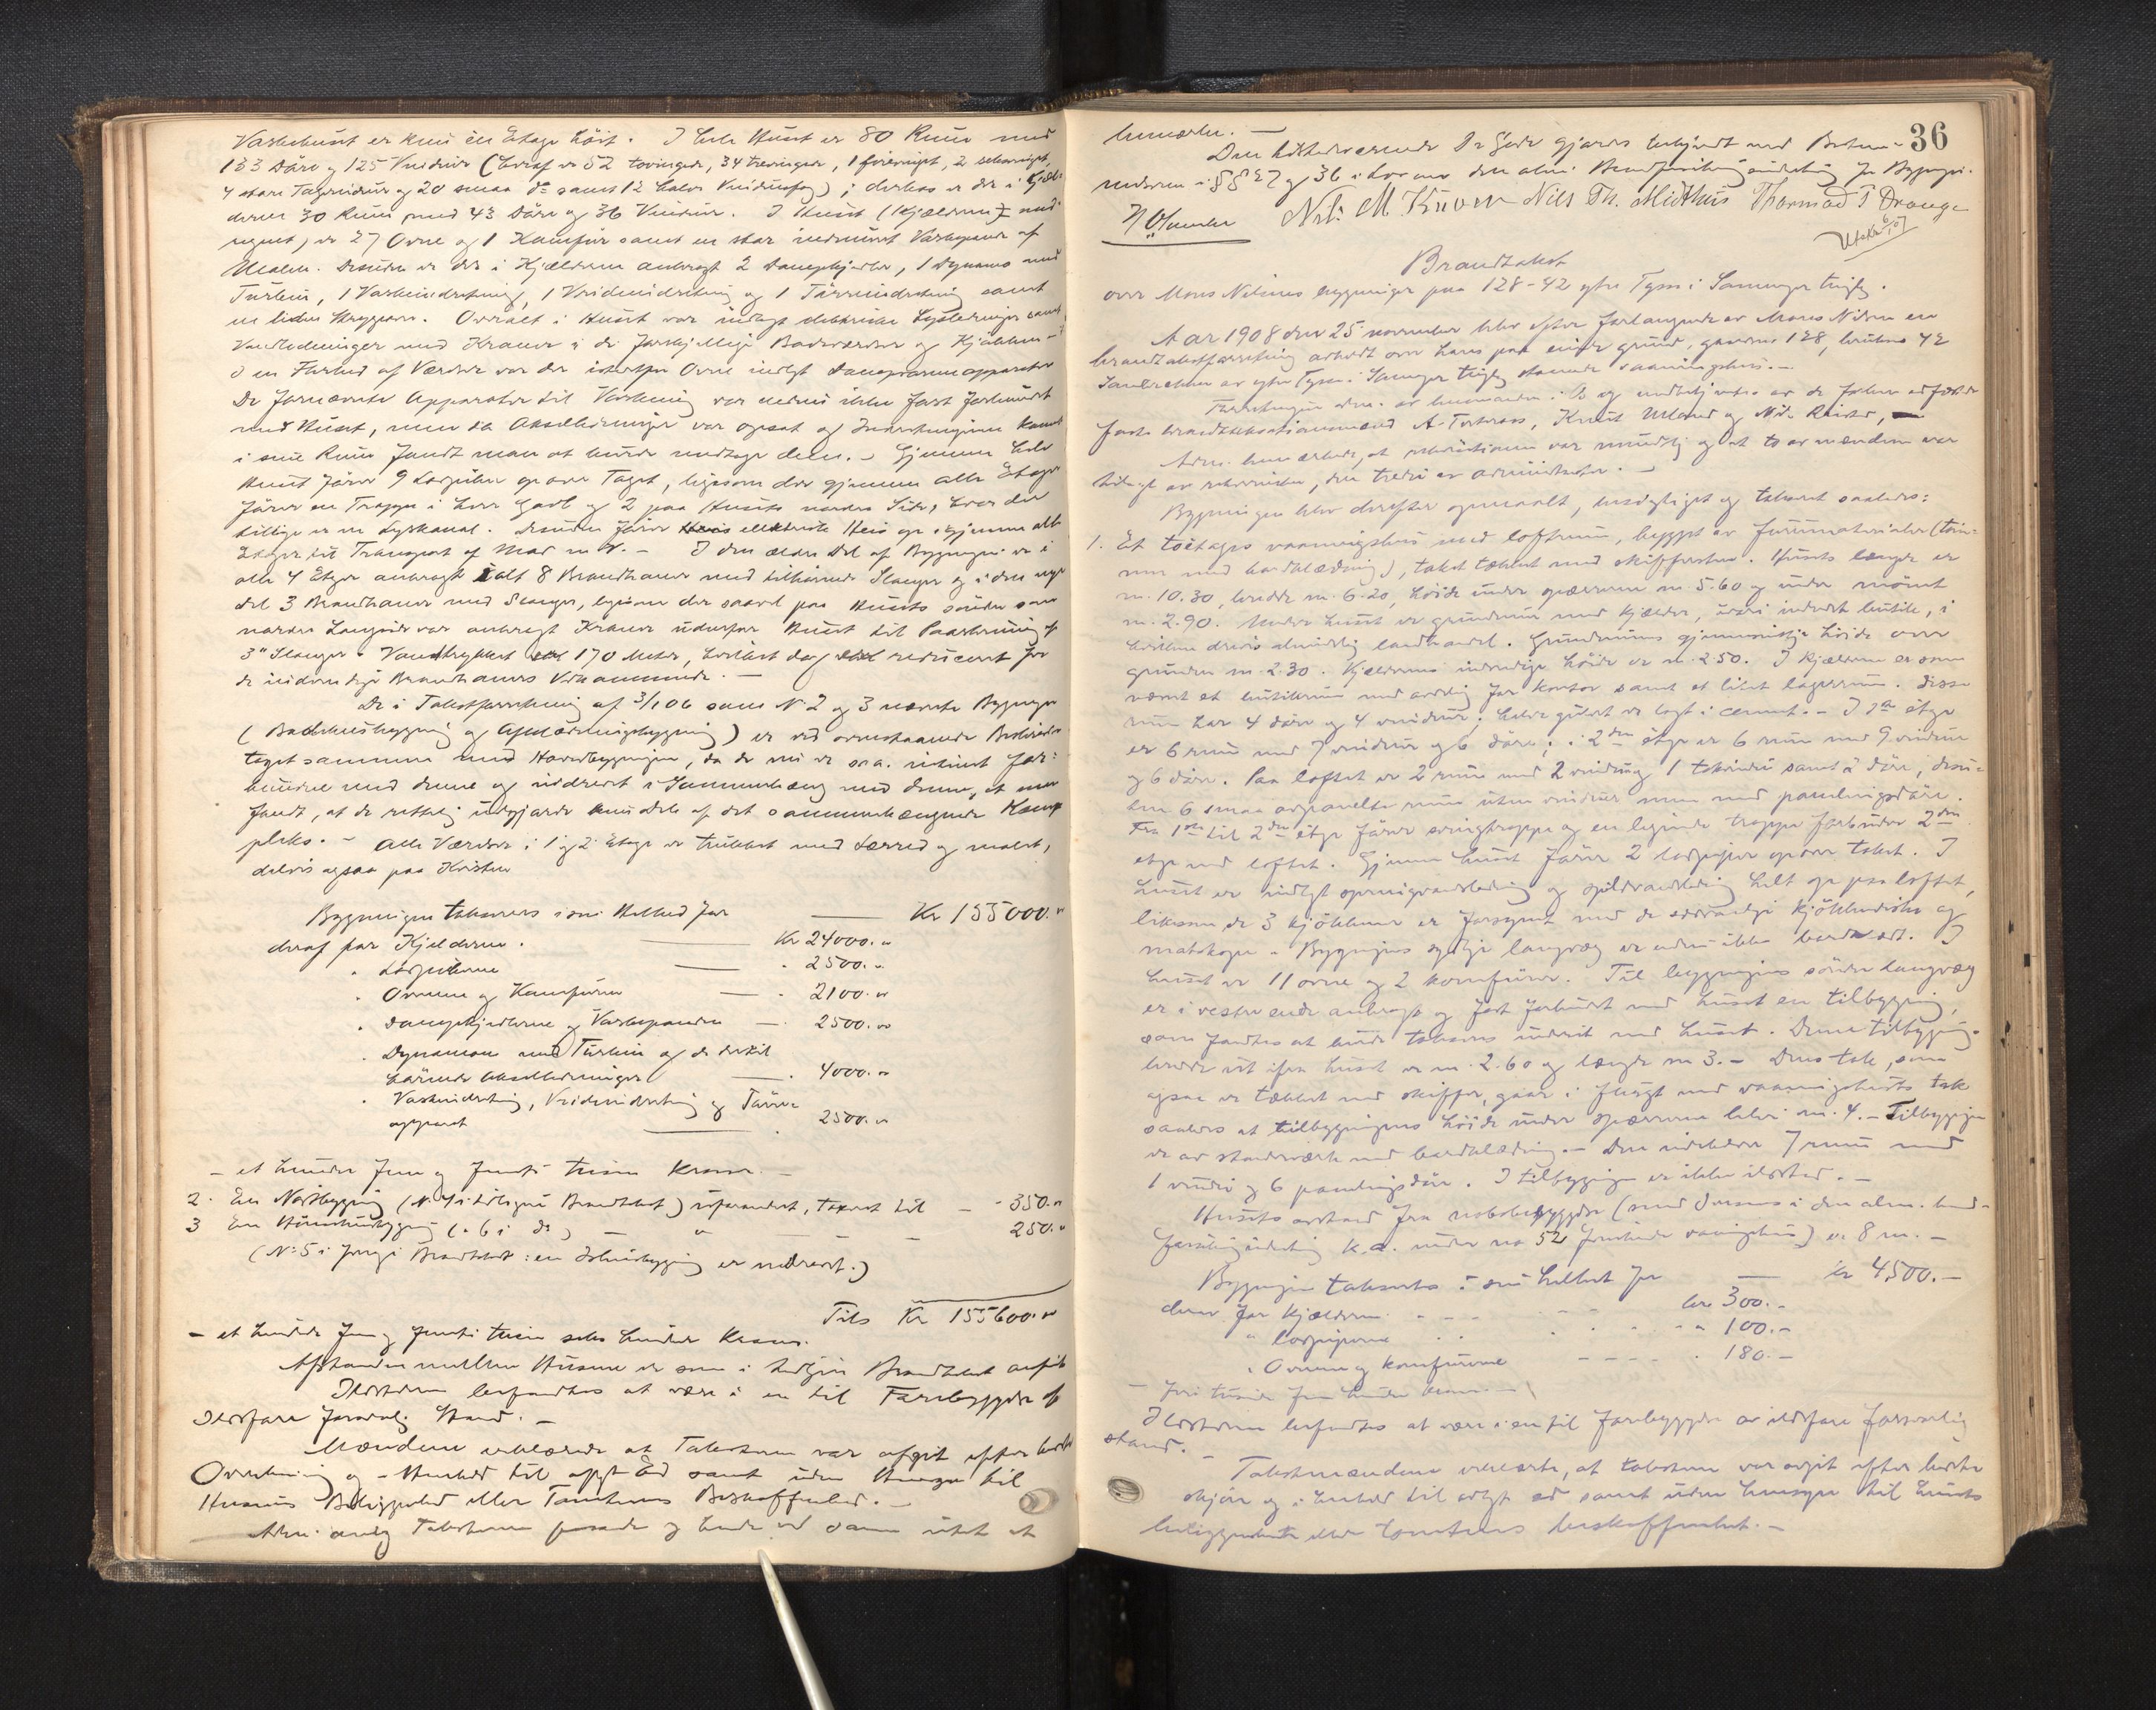 Vaskehuset er kun én Etage høit. I hele Huset er 80 Rum med
133 Døre og 125 Vinduer (hvoraf er 52 tovinger, 34 trevinger, 1 2
4 store Tagvinduer og 20 smaa do samt 12 halve Vinduesfag); desuden er der i Kjæl-
deren 30 Rum med 43 Døre og 36 Vinduer. I Huset (Kjælderen med-
regnet) er 27 Ovne og 1 Komfur samt en stor indmuret Vaskepande af
Desuden er der i Kjælderen anbragt 2 Dampkjedler, 1 Dynamo med
Turbin, 1 Vaskeindretning, 1 Vrideindretning og 1 Tørreindretning samt
en liden Overalt i Huset var indlagt elektriske Lysledninger samt
Vandledninger med Kraner i de forskjellige Badeværelser og Kjøkken
I en Flerhed af Værelser var der istedetfor Ovne indlagt Dampvarmeapparater
De fornævnte Apparater til Vaskning var endnu ikke fast forbundet
med Huset, men da Axelledninger var opsat og Indretningerne kommet
i sine Rum fandt man at burde medtage dem. – Gjennem hele
Huset fører 9 Lorpiber op over Taget, ligesom der gjennem alle Etager
fører en Trappe i hver Gavl og 2 paa Husets nordre Side, hvor der
tillige er en Lyskanal. Desuden fører elektrisk Heis op igjennem alle
Etager til Transport af Mad m. v. – I den ældre Del af Bygningen er i
alle 4 Etager anbragt ialt 8 Brandhaner med tilhørende Slanger og i den nye
Del 3 Brandhaner med Slanger, ligesom der saavel paa Husets søndre som
nordre Langside var anbragt Kraner udenfor Huset til Paaskruning af
3" Slanger. Vandtrykket 170 Meter, hvilket dog reduceret for
de indvendige Brandhaners Vedkommende. –
De i Takstforretning af 3/1 06 som No 2 og 3 nævnte Bygninger
(Badehusbygning og Opvarmingsbygning) er ved ovenstaaende Beskrivelse
taget sammen med Hovedbygningen, da de nu er saa intimt for-
bundne med denne og indredet i Sammenhæng med denne, at man
fandt, at de rettelig udgjorde kun Dele af det sammenhængende Kom-
pleks. – Alle Værelser i 1 og 2 Etage er trukket med Lærred og malet,
delvis ogsaa paa Kvisten
Bygningen takseres i sin Helhed for — Kr 155000.00
deraf for Kjelderen. — Kr 24000.00
" Lorpiberne — " 2500.00
" Ovnene og Komfuren — " 2100.00
" Dampkjedlerne og Vaskepanden — " 2500.00
" Dynamoen med Turbin og de dertil
hørende Axelledninger — " 4000.00
" Vaskeindretning, Vrideindretning og Tørre-
apparat — " 2500.00
– et hundre fem og femti tusen Kroner. –
2. En Nøstbygning (No 4 i tidligere Brandtakst) uforandret, takseret til — - 350.00
3 En Hønsehusbygning (" 6 i do) — " — 250.00
(No 5 i forrige Brandtakst: en Ishusbygning er nedrevet.)
Tils Kr 155600.00
– et hundrede fem og femti tusen seks hundrede Kroner.
Afstanden mellem Husene er som i tidligere Brandtakst anført
Ildstederne befandtes at være i en til Forebyggelse af
Ildsfare forsvarlig Stand. –
Mændene erklærede at Taksterne var afgit efter bedste
Overbevisning og i Henhold til aflagt Ed samt uden Hensyn til
Husenes Beliggenhed eller Tomternes Beskaffenhed. –
Adm. ansaa Taksterne passende og havde ved samme intet at
36
bemærke. –
Den tilstedeværende Dr Gade gjordes bekjendt med Bestem-
melserne i §§ 27 og 36 i Lov om den alm. Brandforsikringsindretning for Bygninger.
N Olsmeder Nils M Kuven Nils Th. Midthus Thormod T Drange
Utskr 6/1 07
Brandtakst
over Mons Nilsens bygninger paa 128-42 ytre Tysse i Samnanger tinglag.
Aar 1908 den 25 november blev efter forlangende av Mons Nilsen en
brandtakstforretning avholdt over hans paa eiende grund, gaardsno 128, bruksno 42
av ytre Tysse i Samnanger tinglag staaende vaaningshus. –
Forretningen adm. av lensmanden i Os og medbetjentes av de foran edfæstede
faste brandtakstmænd A. Tveteraas, Knut Utland og Nils Reistad, –
Adm. bemærkede, at rekvisitionen var mundtlig og at to av mændene var
tilsagt av rekvirenten, den tredie av administrator. –
Bygningen blev derefter opmaalt, besigtiget og taksert saaledes:
1. Et toetages vaaningshus med loftrum, bygget av furumaterialer (tøm-
mer med bordklædning), taket tækket med skifersten. Husets længde er
m. 10.30, bredde m. 6.20, høide under spærrene m. 5.60 og under mønet
m. 2.90. Under huset er grundmur med kjælder, hvori indredet butik, i
hvilken drives almindelig landhandel. Grundmurens gjennemsnitlige høide over
grunden m. 2.30. Kjælderens indvendige høide er m. 2.50. I kjælderen er som
nævnt et butikrum med avdelig for kontor samt et litet lagerrum. Disse
rum har 4 døre og 4 vinduer; hele gulvet er lagt i cement. – I 1ste etage
er 6 rum med 7 vinduer og 6 døre; i 2den etage er 6 rum med 9 vinduer
og 6 døre. Paa loftet er 2 rum med 2 vinduer og 1 takvindu samt 2 døre, desu-
ten 6 smaa avpanelte rum uten vinduer men med panelingsdøre.
Fra 1ste til 2den etage fører svingtrappe og en lignende trappe forbinder 2den
etage med loftet. Gjennem huset fører 2 lorpiper op over taket. I
huset er indlagt springvandsledning og spildvandsledning helt op paa loftet,
likesom de 3 kjøkkener er forsynet med de sedvanlige kjøkkendisker og
matskaper. Bygningens sydlige langvæg er endnu ikke bordklædt. I
huset er 11 ovne og 2 komfurer. Til bygningens søndre langvæg
er i vestre ende anbragt og fast forbundet med huset en tilbygning,
som fandtes at burde takseres under ett med huset. Denne tilbygnings
bredde ut ifra huset er m. 2.60 og længde m 3. – Dens tak, som
ogsaa er tækket med skiffer, gaar i flugt med vaaningshusets tak
saaledes at tilbygningens høide under spærrene blir m. 4. – Tilbygningen
er av standværk med bordklædning. – Den indeholder 7 rum med
1 vindu og 6 panelingsdøre. I tilbygningen er ikke ildsted. –
Husets avstand fra nabobebyggelse (med i den alm. brand-
forsikringsindretning k.a. under no 52 forsikrede vaaningshus) er 8 m. –
Bygningen takseres i sin helhet for — Kr 4500. –
derav for Kjælderen - - - - kr. 300. –
" lorpiperne - - - - " 100. –
" Ovnene og komfurerne - - - - " 180. –
– fire tusinde fem hundre kroner –
Ildstederne befandtes at være i en til forebyggelse av ildsfare forsvarlig
stand. –
Takstmændene erklærte, at taksten var avgit efter bedste
skjøn og i henhold til avlagt ed samt uten hensyn til husets
beliggenhet eller tomtens beskaffenhet. –